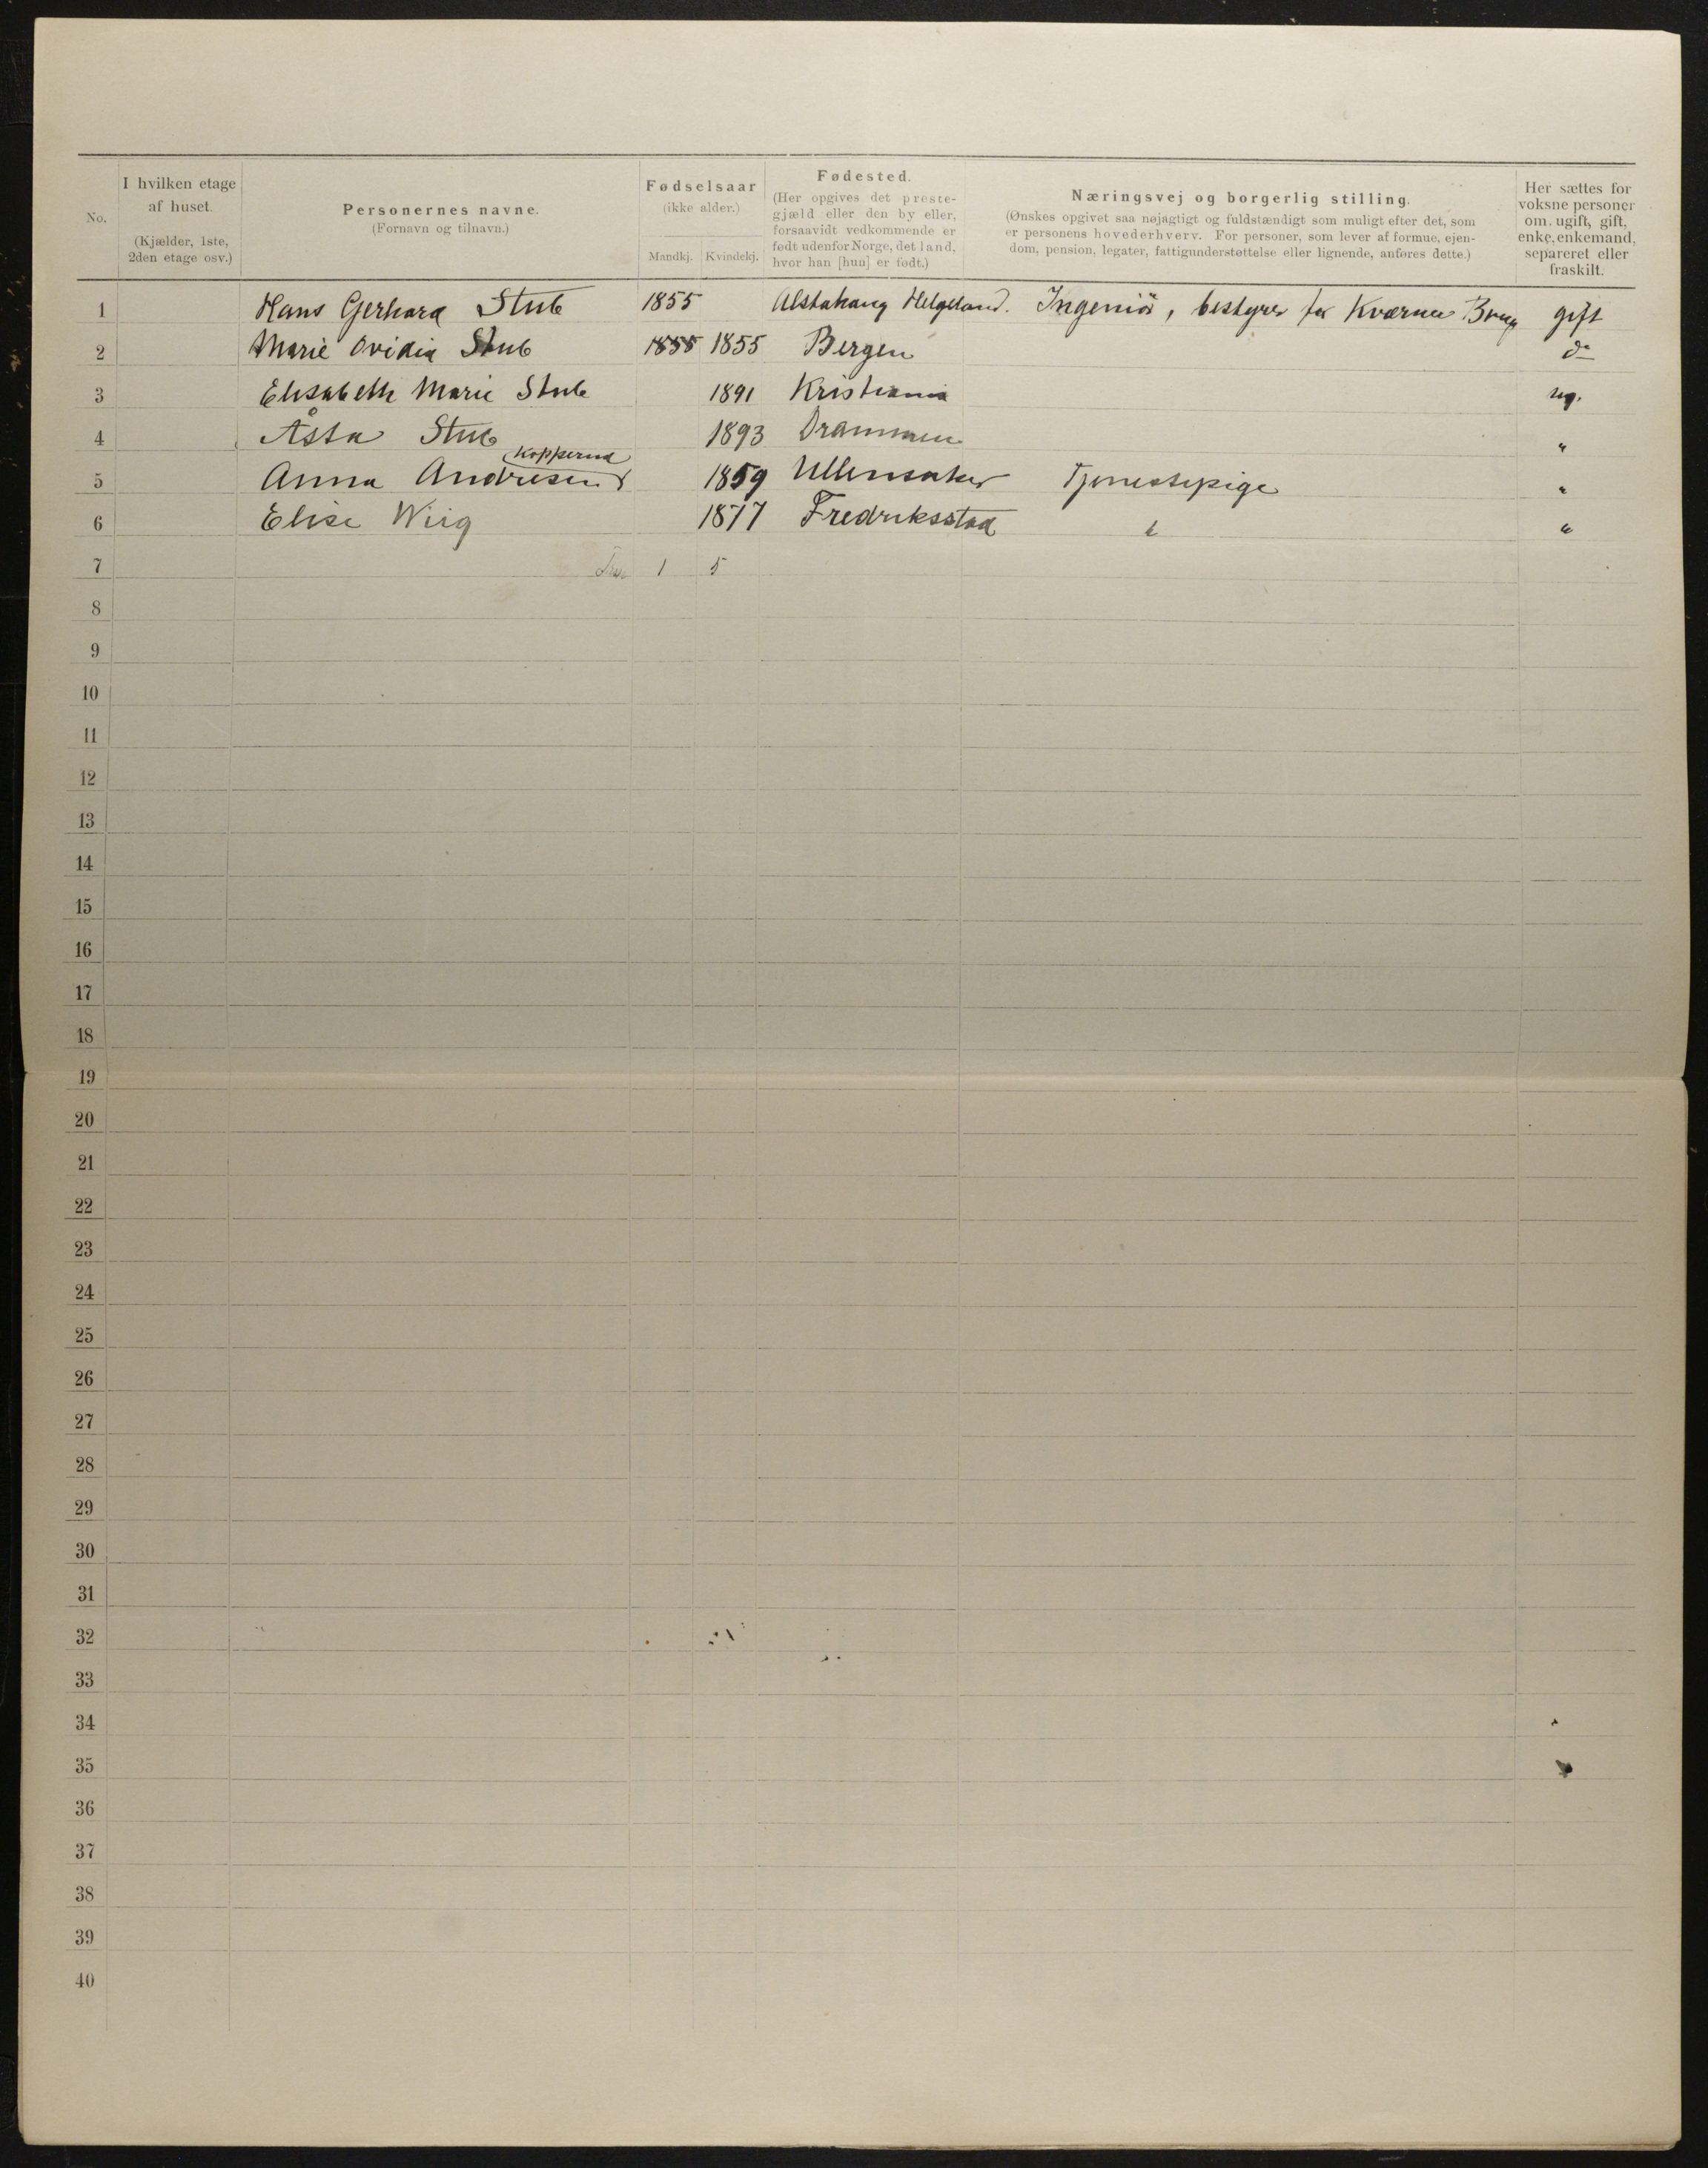 No.
I hvilken etage af huset.
(Kjælder, 1ste, 2den etage osv.)
Personernes navne.
(Fornavn og tilnavn.)
Fødselsaar
(ikke alder.)
Mandkj.
Kvindekj.
Fødested.
(Her opgives det preste-
gjæld eller den by eller,
forsaavidt vedkommende er
født udenfor Norge, det land,
hvor han [hun] er født.)
Næringsvej og borgerlig stilling.
(Ønskes opgivet saa nøjagtigt og fuldstændigt som muligt efter det, som
er personens hovederhverv. For personer, som lever af formue, ejen-
dom, pension, legater, fattigunderstøttelse eller lignende, anføres dette.)
Her sættes for
voksne personer
om. ugift, gift,
enke, enkemand,
separeret eller
fraskilt.
1 Hans Gerhard Stub 1855 Alstahaug Helgeland. Ingeniör, bestyrer for Kværner Brug gift
2 Marie Ovidia Stub 1855 1855 Bergen do
3 Elisabeth Marie Stub 1891 Kristiania ug.
4 Åsta Stub 1893 Drammen "
Kopperud
5 Anna Andresen 1859 Ullensaker Tjenestepige "
6 Elise Wiig 1877 Fredriksstad " "
7 1 5
8
9
10
11
12
13
14
15
16
17
18
19
20
21
22
23
24
25
26
27
28
29
30
31
32
33
34
35
36
37
38
39
40